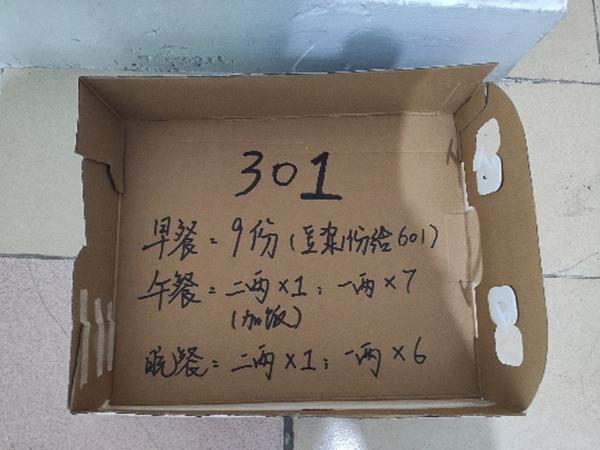 301
早餐：9份（豆浆1份给601）
午餐：二两×1；一两×7
（加饭）
晚餐：二两×1；一两×6